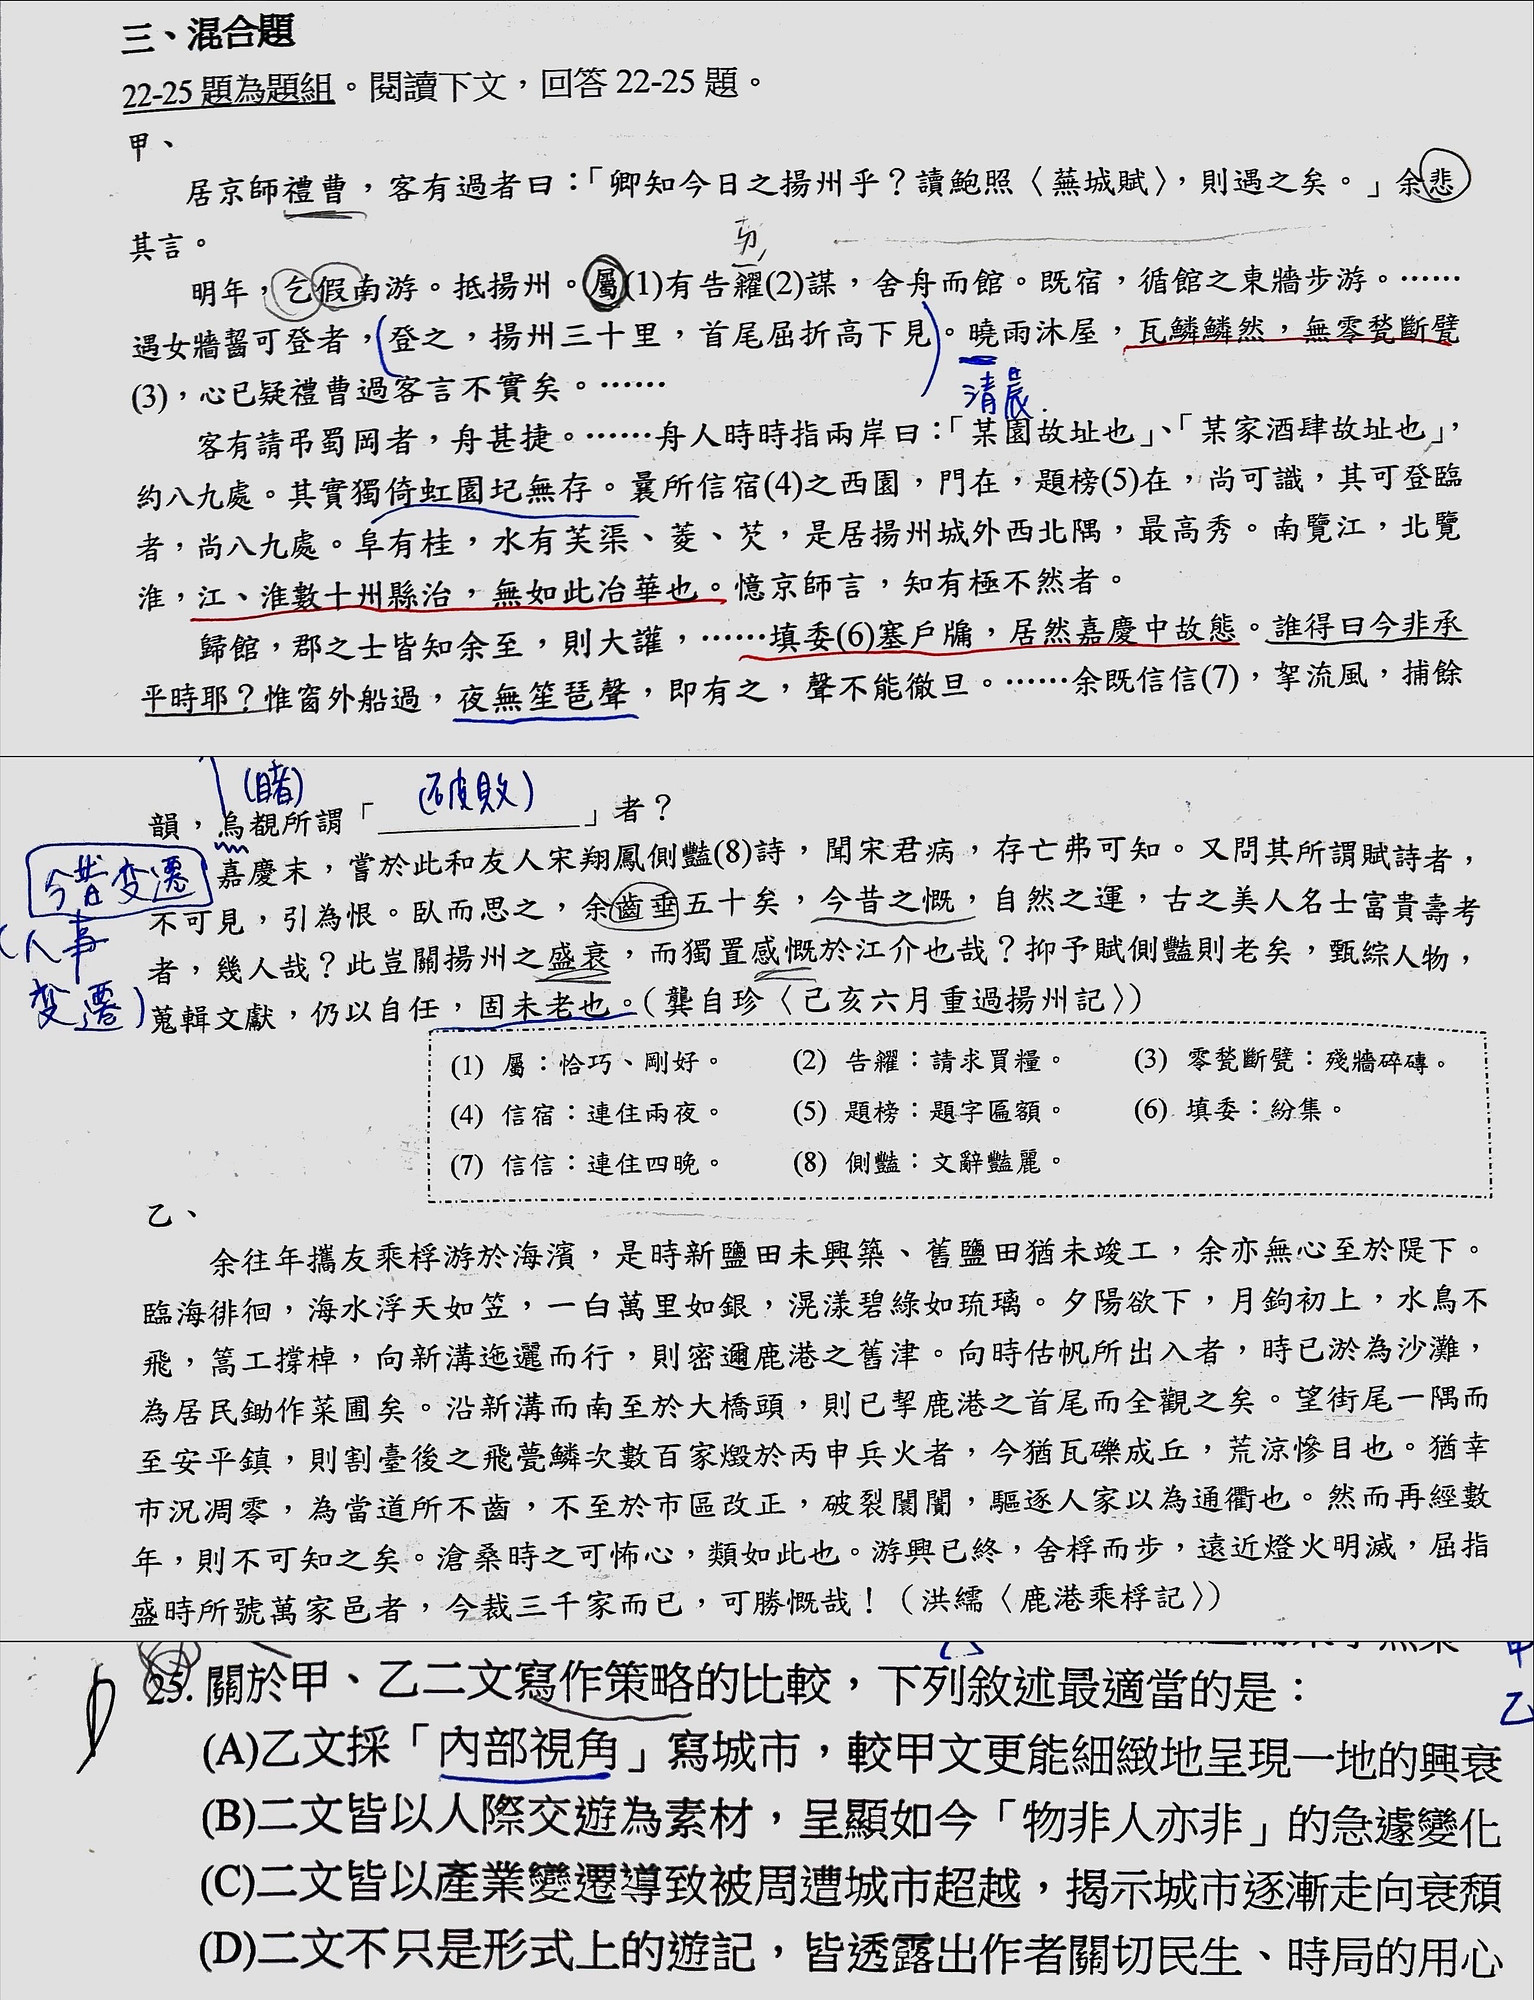 三、混合題
22-25 題為題組。閱讀下文,回答 22-25 題。
甲、
居京師禮曹,客有過者曰:「卿知今日之揚州乎?讀鮑照〈蕪城賦〉,則遇之矣。」余悲
其言。
ㄉㄧˊ
明年,乞假南游。抵揚州。屬(1)有告糴(2)謀,舍舟而館。既宿,循館之東牆步游。……
遇女牆齧可登者,(登之,揚州三十里,首尾屈折高下見)。曉雨沐屋,瓦鱗鱗然,無零甃斷甓
(3),心已疑禮曹過客言不實矣。……
清晨
客有請弔蜀岡者,舟甚捷。……舟人時時指兩岸曰:「某園故址也」、「某家酒肆故址也」,
約八九處。其實獨倚虹園圮無存。曩所信宿(4)之西園,門在,題榜(5)在,尚可識,其可登臨
者,尚八九處。阜有桂,水有芙渠、菱、芡,是居揚州城外西北隅,最高秀。南覽江,北覽
淮,江、淮數十州縣治,無如此冶華也。憶京師言,知有極不然者。
歸館,郡之士皆知余至,則大讙,……填委(6)塞戶牖,居然嘉慶中故態。誰得曰今非承
平時耶?惟窗外船過,夜無笙琶聲,即有之,聲不能徹旦。……余既信信(7),挐流風,捕餘
(睹)
(破敗)
韻,烏覩所謂「__________」者?
今昔变遷
(人事
变遷)
嘉慶末,嘗於此和友人宋翔鳳側豔(8)詩,聞宋君病,存亡弗可知。又問其所謂賦詩者,
不可見,引為恨。臥而思之,余齒垂五十矣,今昔之慨,自然之運,古之美人名士富貴壽考
者,幾人哉?此豈關揚州之盛衰,而獨置感慨於江介也哉?抑予賦側豔則老矣,甄綜人物,
蒐輯文獻,仍以自任,固未老也。(龔自珍〈己亥六月重過揚州記〉)
(1) 屬:恰巧、剛好。 (2) 告糴:請求買糧。 (3) 零甃斷甓:殘牆碎磚。
(4) 信宿:連住兩夜。 (5) 題榜:題字匾額。 (6) 填委:紛集。
(7) 信信:連住四晚。 (8) 側豔:文辭豔麗。
乙、
余往年攜友乘桴游於海濱,是時新鹽田未興築、舊鹽田猶未竣工,余亦無心至於隄下。
臨海徘徊,海水浮天如笠,一白萬里如銀,滉漾碧綠如琉璃。夕陽欲下,月鉤初上,水鳥不
飛,篙工撐棹,向新溝迤邐而行,則密邇鹿港之舊津。向時估帆所出入者,時已淤為沙灘,
為居民鋤作菜圃矣。沿新溝而南至於大橋頭,則已挈鹿港之首尾而全觀之矣。望街尾一隅而
至安平鎮,則割臺後之飛甍鱗次數百家燬於丙申兵火者,今猶瓦礫成丘,荒涼慘目也。猶幸
市況凋零,為當道所不齒,不至於市區改正,破裂闤闠,驅逐人家以為通衢也。然而再經數
年,則不可知之矣。滄桑時之可怖心,類如此也。游興已終,舍桴而步,遠近燈火明滅,屈指
盛時所號萬家邑者,今裁三千家而已,可勝慨哉!(洪繻〈鹿港乘桴記〉)
甲
乙
25. 關於甲、乙二文寫作策略的比較,下列敘述最適當的是:
(A)乙文採「內部視角」寫城市,較甲文更能細緻地呈現一地的興衰
(B)二文皆以人際交遊為素材,呈顯如今「物非人亦非」的急遽變化
(C)二文皆以產業變遷導致被周遭城市超越,揭示城市逐漸走向衰頹
(D)二文不只是形式上的遊記,皆透露出作者關切民生、時局的用心